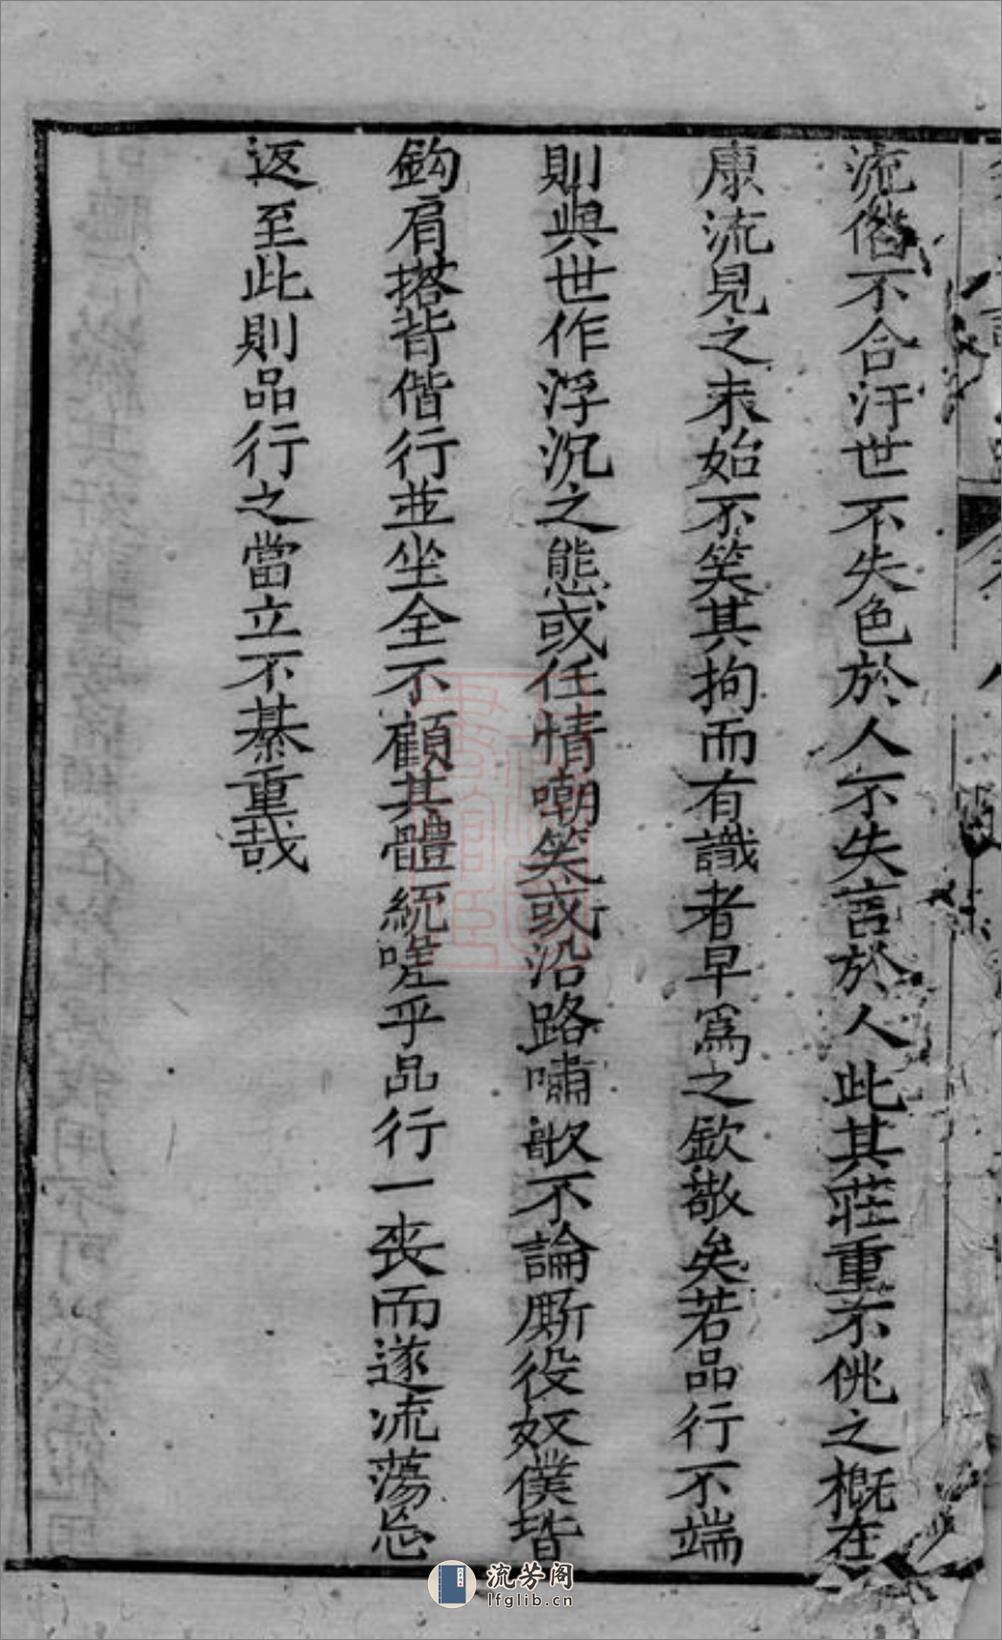 流僃不合汙世不失色於人不失言於人此其莊重不佻之概在
康流見之未始不笑其拘而有識者早爲之欽敬矣若品行不端
則與世作浮沉之態或任情嘲笑或沿路嘯歌不論厮役奴僕皆
鈎肩搭背偕行並坐全不顧其體統嗟乎品行一丧而遂流蕩忘
返至此則品行之當立不綦重哉
流芳阁
lfglib.cn